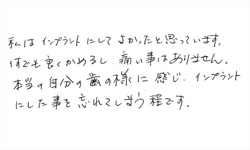 私は インプラントにして よかったと思っています。
何でも良くかめるし、痛い事はありません。
本当の自分の歯の様に感じ、インプラント
にした事を忘れてしまう程です。